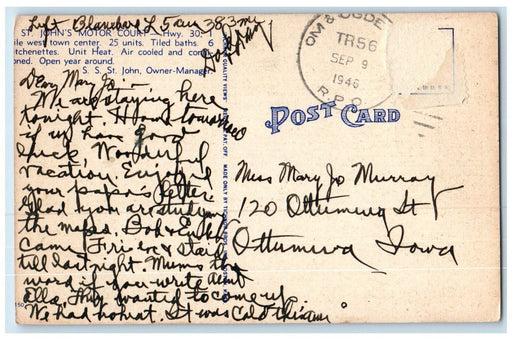 Left Blanchard L 5 am 383 mi
ST. JOHN'S MOTOR COURT — Hwy. 30; 1
ile west town center. 25 units. Tiled baths. 6
tchenettes. Unit Heat. Air cooled and con
oned. Open year around.
S. S. St. John, Owner-Manager
Dear Mary Jo:-
We are staying here
tonight. Home tomorrow
if we have good
luck. Wonderful
vacation. Enjoyed
your papa's letter
Glad you are studying
the maps. Bob & Edith
came Fri eve & staid
till last night. Mums the
word if you write Aunt
Ella. They wanted to come up.
We had no heat. It was cold
OM & OGDEN
TR56
SEP 9
1946
R.P.O.
POST CARD
Miss Mary Jo Murray
120 Ottumwa St
Ottumwa Iowa